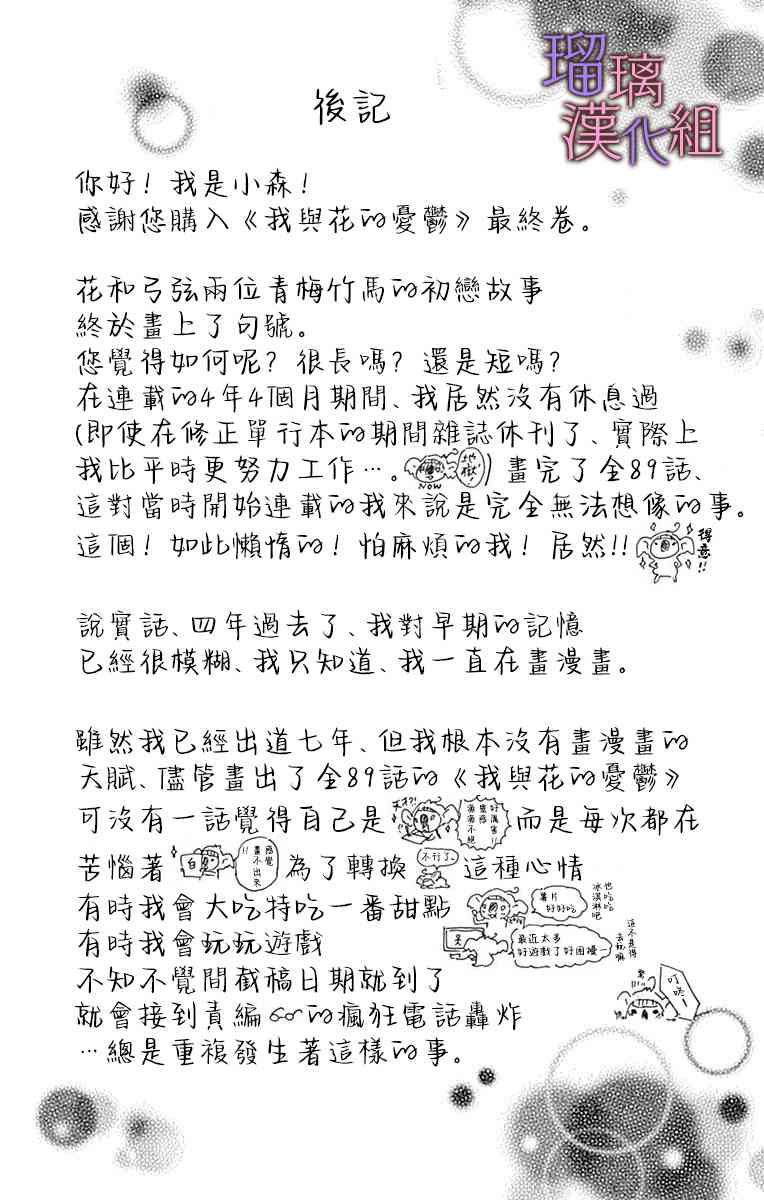 瑠璃
漢化組
後記
你好！我是小森！
感謝您購入《我與花的憂鬱》最終卷。
花和弓弦兩位青梅竹馬的初戀故事
終於畫上了句號。
您覺得如何呢？很長嗎？還是短嗎？
在連載的4年4個月期間、我居然沒有休息過
(即使在修正單行本的期間雜誌休刊了、實際上
我比平時更努力工作…。NOW 地獄！) 畫完了全89話、
這對當時開始連載的我來說是完全無法想像的事。
這個！如此懶惰的！怕麻煩的我！居然!! 得意!!
說實話、四年過去了、我對早期的記憶
已經很模糊、我只知道、我一直在畫漫畫。
雖然我已經出道七年、但我根本沒有畫漫畫的
天賦、儘管畫出了全89話的《我與花的憂鬱》
可沒有一話覺得自己是 天才?! 好厲害!! 靈感滴滴不絕 而是每次都在
苦惱著 白 感覺畫不出來!! 為了轉換 不行了。 這種心情
有時我會大吃特吃一番甜點 薯片好好吃 也吃吃冰淇淋吧
有時我會玩玩遊戲 最近太多好遊戲了好困擾 這不是得去玩嘛
不知不覺間截稿日期就到了 叮咚
就會接到責編的瘋狂電話轟炸
…總是重複發生著這樣的事。